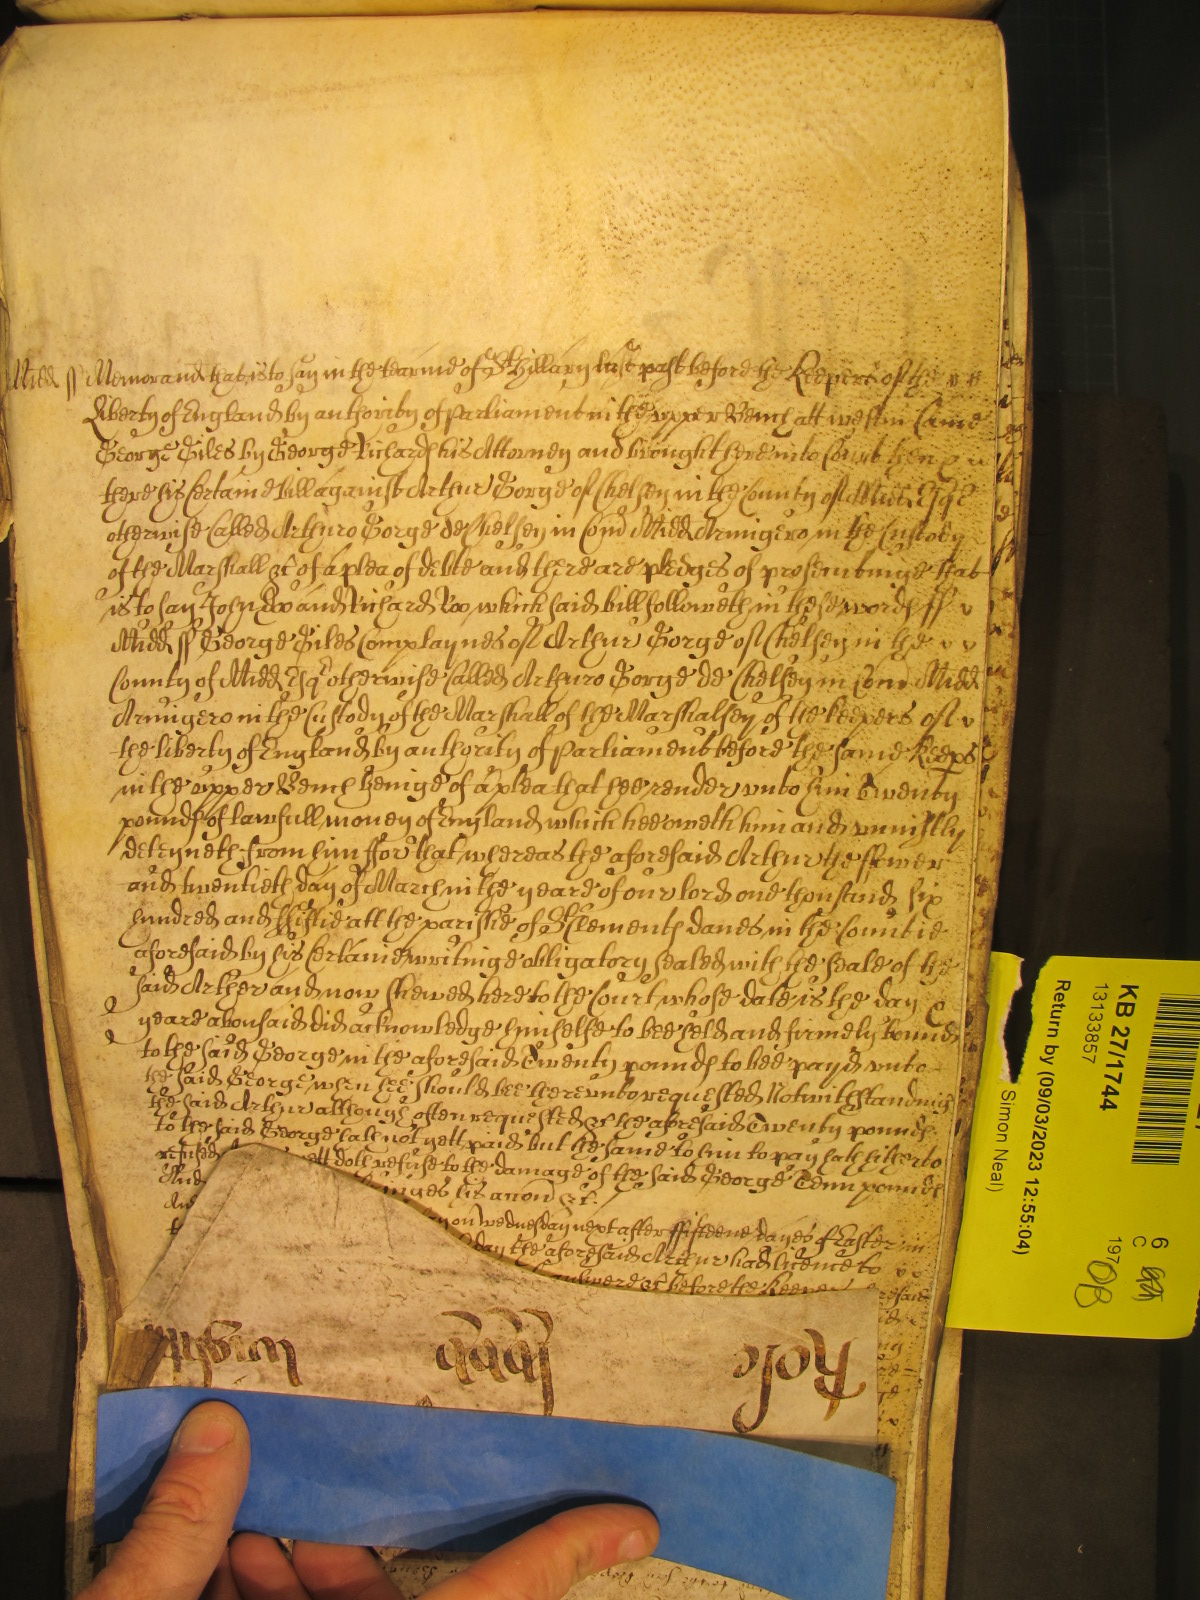 Midd ss Memorand that is to say in the tearme of St Hillary last past before the Keepers of the
Liberty of England by authority of Parliament in the upper Bench att westm Came
George Giles by George Richards his Attorney and brought here into Court then
there his Certaine bill against Arthur Gorge of Chelsey in the County of Midd Esqr
otherwise Called Arthuro Gorge de Chelsey in Com Midd Armigero in the Custody
of the Marshall &c of a plea of debte and there are pledges of prosecutinge that
is to say John Doo and Richard Roo, which said bill followeth in these words ss
Midd ss George Giles Complaynes of Arthur Gorge of Chelsey in the
County of Midd Esqr otherwise Called Arthuro Gorge de Chelsey in Com Midd
Armigero in the Custody of the Marshall of the Marshalsey of the keepers of
the liberty of England by authority of Parliament before the same Keeps
in the upper Bench beinge of a plea that hee render unto him Twenty
pounds of lawfull money of England which hee oweth him and uniustly
deteyneth from him ffor that whereas the aforesaid Arthur the
and twentieth day of March in the yeare of our lord one thousand six
hundred and ffiftie att the parishe of St Clements danes in the Countie
aforesaid by his Certaine writinge obligatory sealed with the seale of the
said Arther and now shewed here to the Court whose date is the day &
yeare abousaid did acknowledge himselfe to bee held and firmely bound
to the said George in the aforesaid Twenty pounds to bee payd unto
the said George when hee should bee thereunto requested Notwithstanding
the said Arthur although often requested &c the aforesaid Twenty pounds
to the said George hath not yett paid but the same to him to pay hath hitherto
refused yett doth refuse to the damage of the said George Tenn pounds
And
And on wednesday next after ffifteene dayes of Easter in
day the aforesaid Arthur had licence to
before the Keepers
Role
wright
KB 27/1744
13133857
Return by (09/03/2023 12:55:04)
Simon Neal)
6
C
197